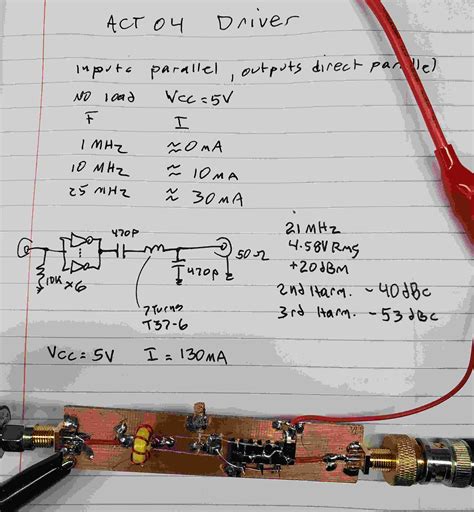 ACT04 Driver
inputs parallel, outputs direct parallel)
NO load VCC = 5V
F I
1 MHz ≈ 0mA
10 MHz ≈ 10mA
25 MHz ≈ 30mA
470P
50Ω
470P
10K
x6
7 Turns
T37-6
21 MHz
4.58V RMS
+20dBM
2nd Harm. -40dBc
3rd Harm. -53dBc
VCC = 5V I = 130mA